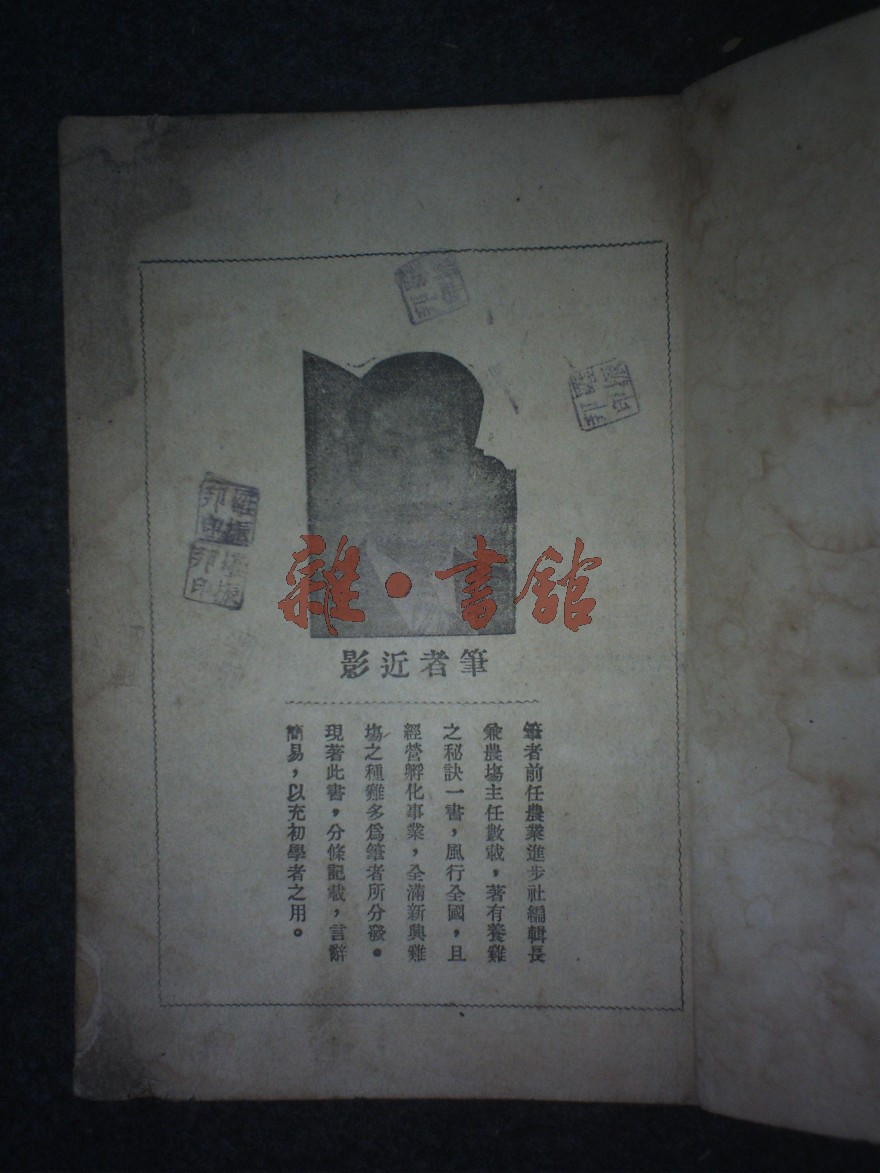 雜·書館
筆者近影
筆者前任農業進步社編輯長
兼農塲主任數載，著有養雞
之秘訣一書，風行全國，且
經營孵化事業，全滿新興雞
塲之種雞多爲筆者所分發。
現著此書，分條記載，言辭
簡易，以充初學者之用。